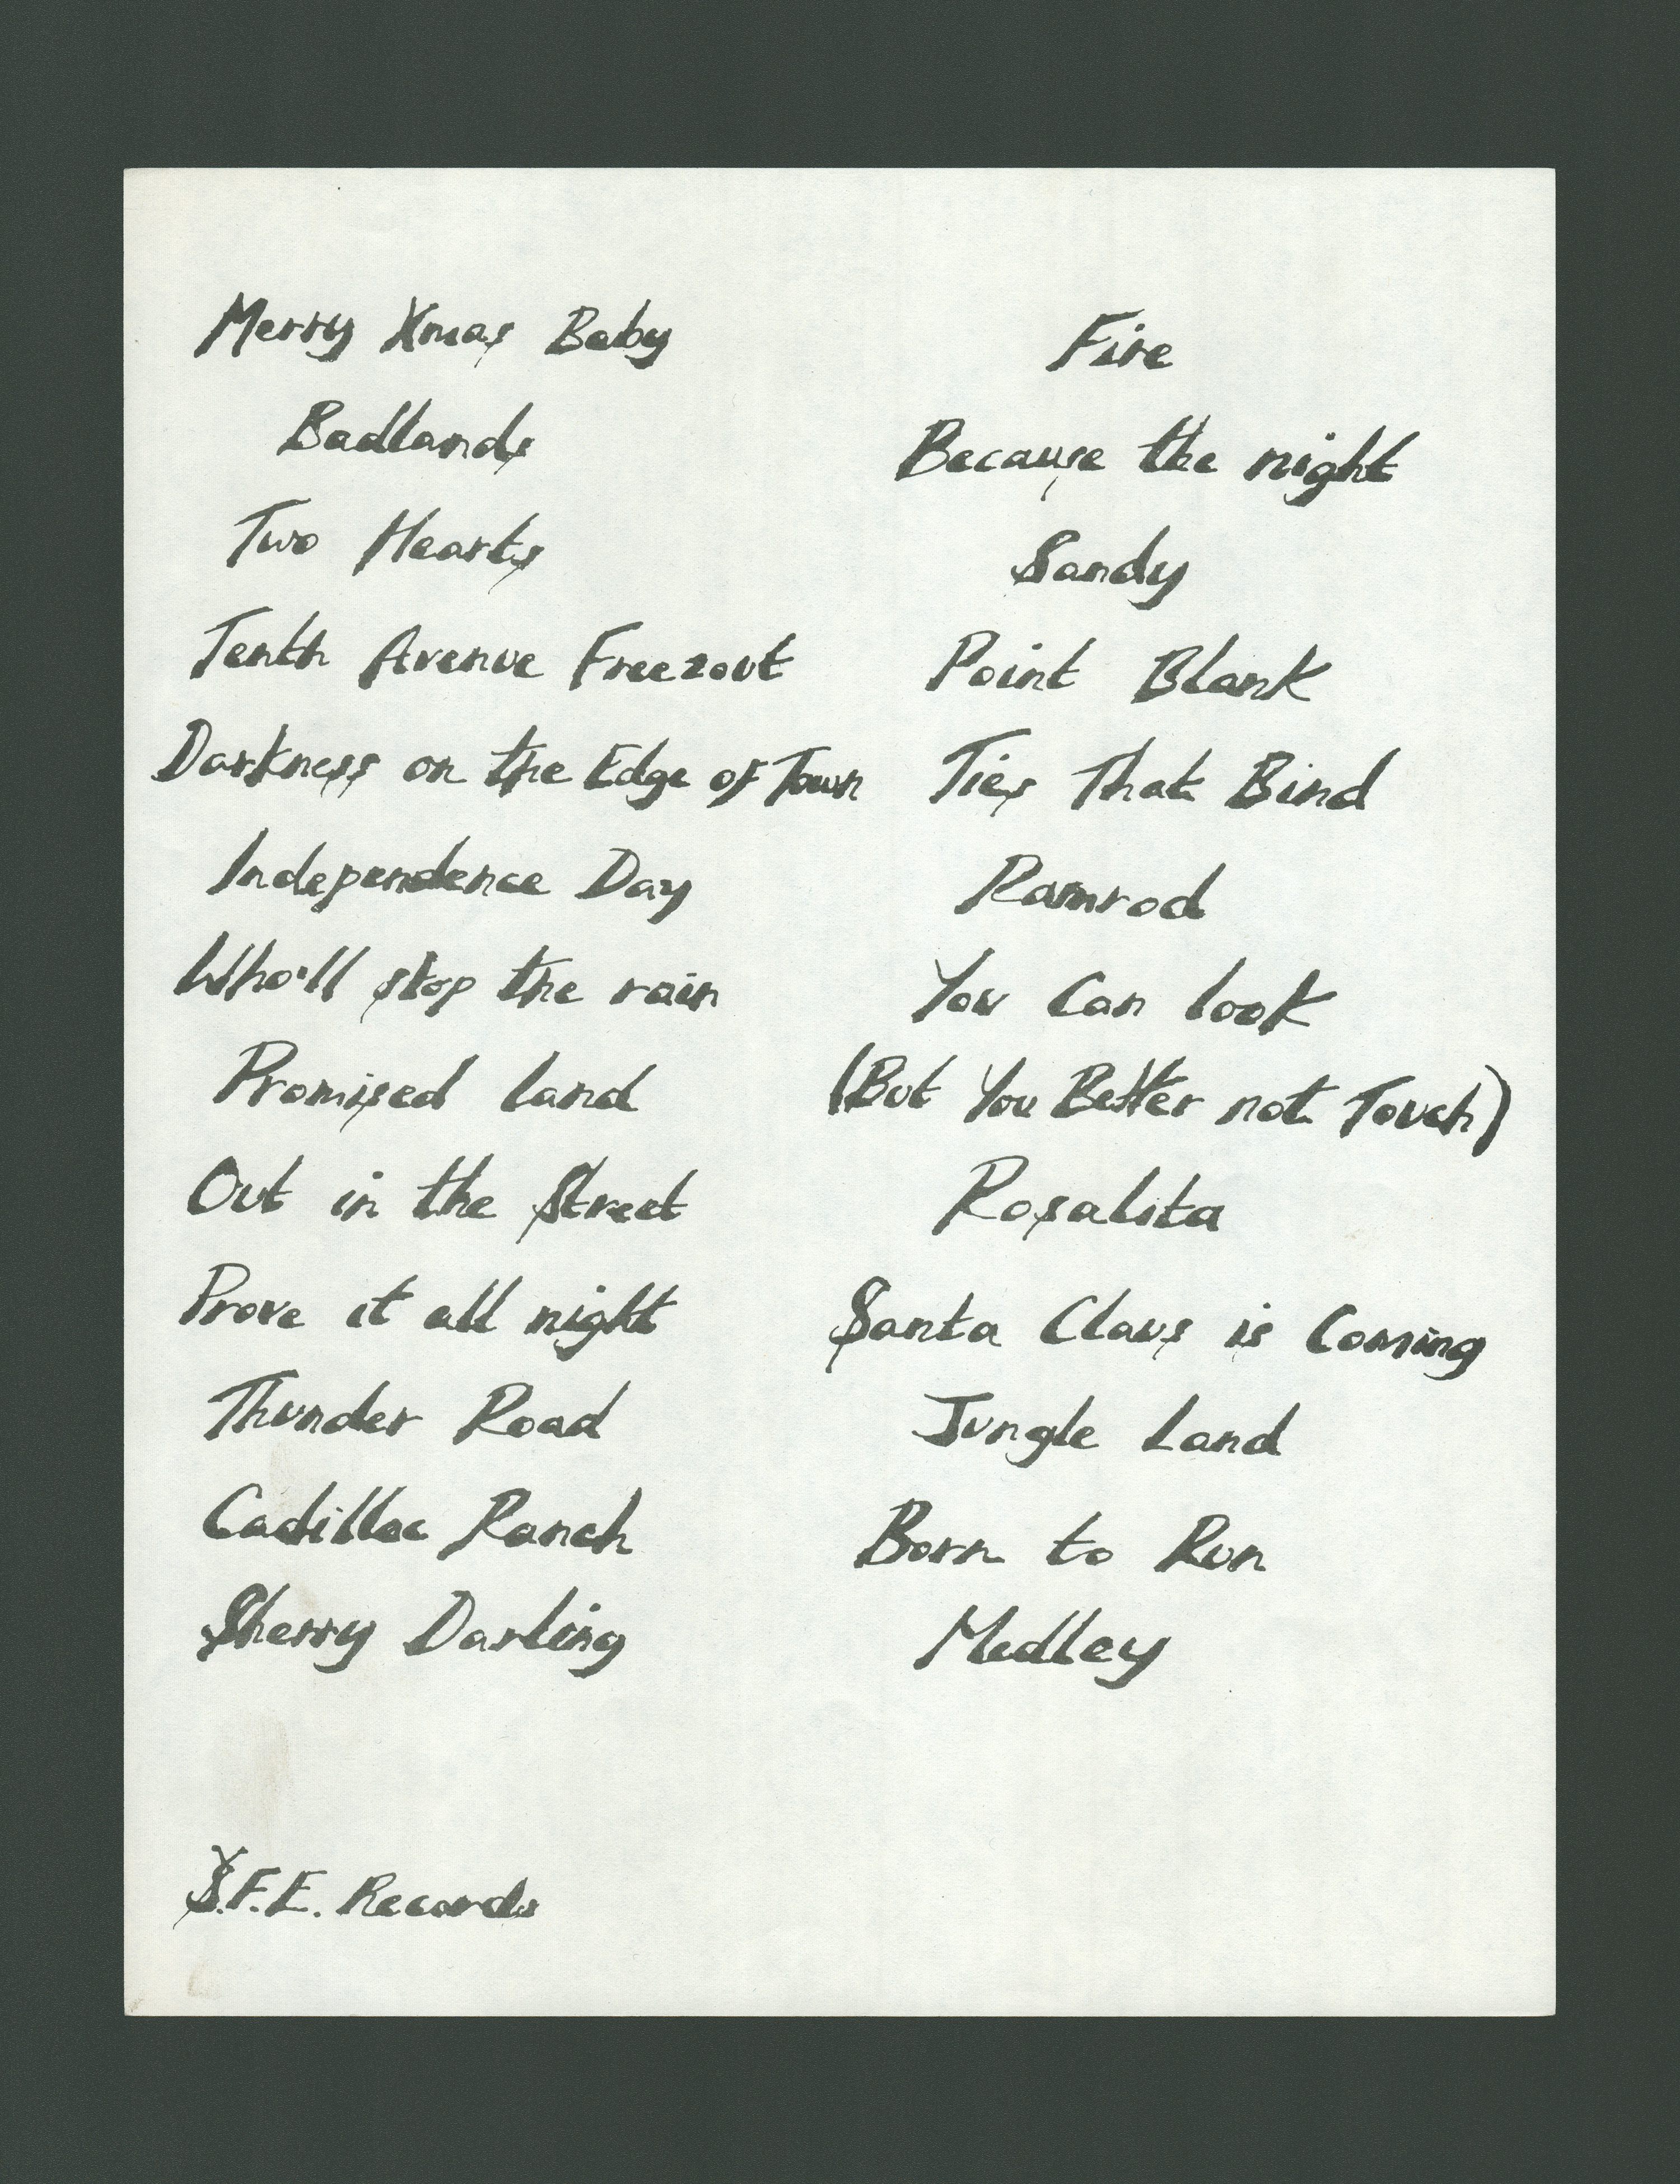 Merry Xmas Baby
Badlands
Two Hearts
Tenth Avenue Freezout
Darkness on the Edge of Town
Independence Day
Who'll stop the rain
Promised land
Out in the Street
Prove it all night
Thunder Road
Cadillac Ranch
Sherry Darling
S.F.E. Records
Fire
Because the night
Sandy
Point Blank
Ties That Bind
Ramrod
You Can look
(But You Better not Touch)
Rosalita
Santa Claus is Coming
Jungle Land
Born to Run
Medley